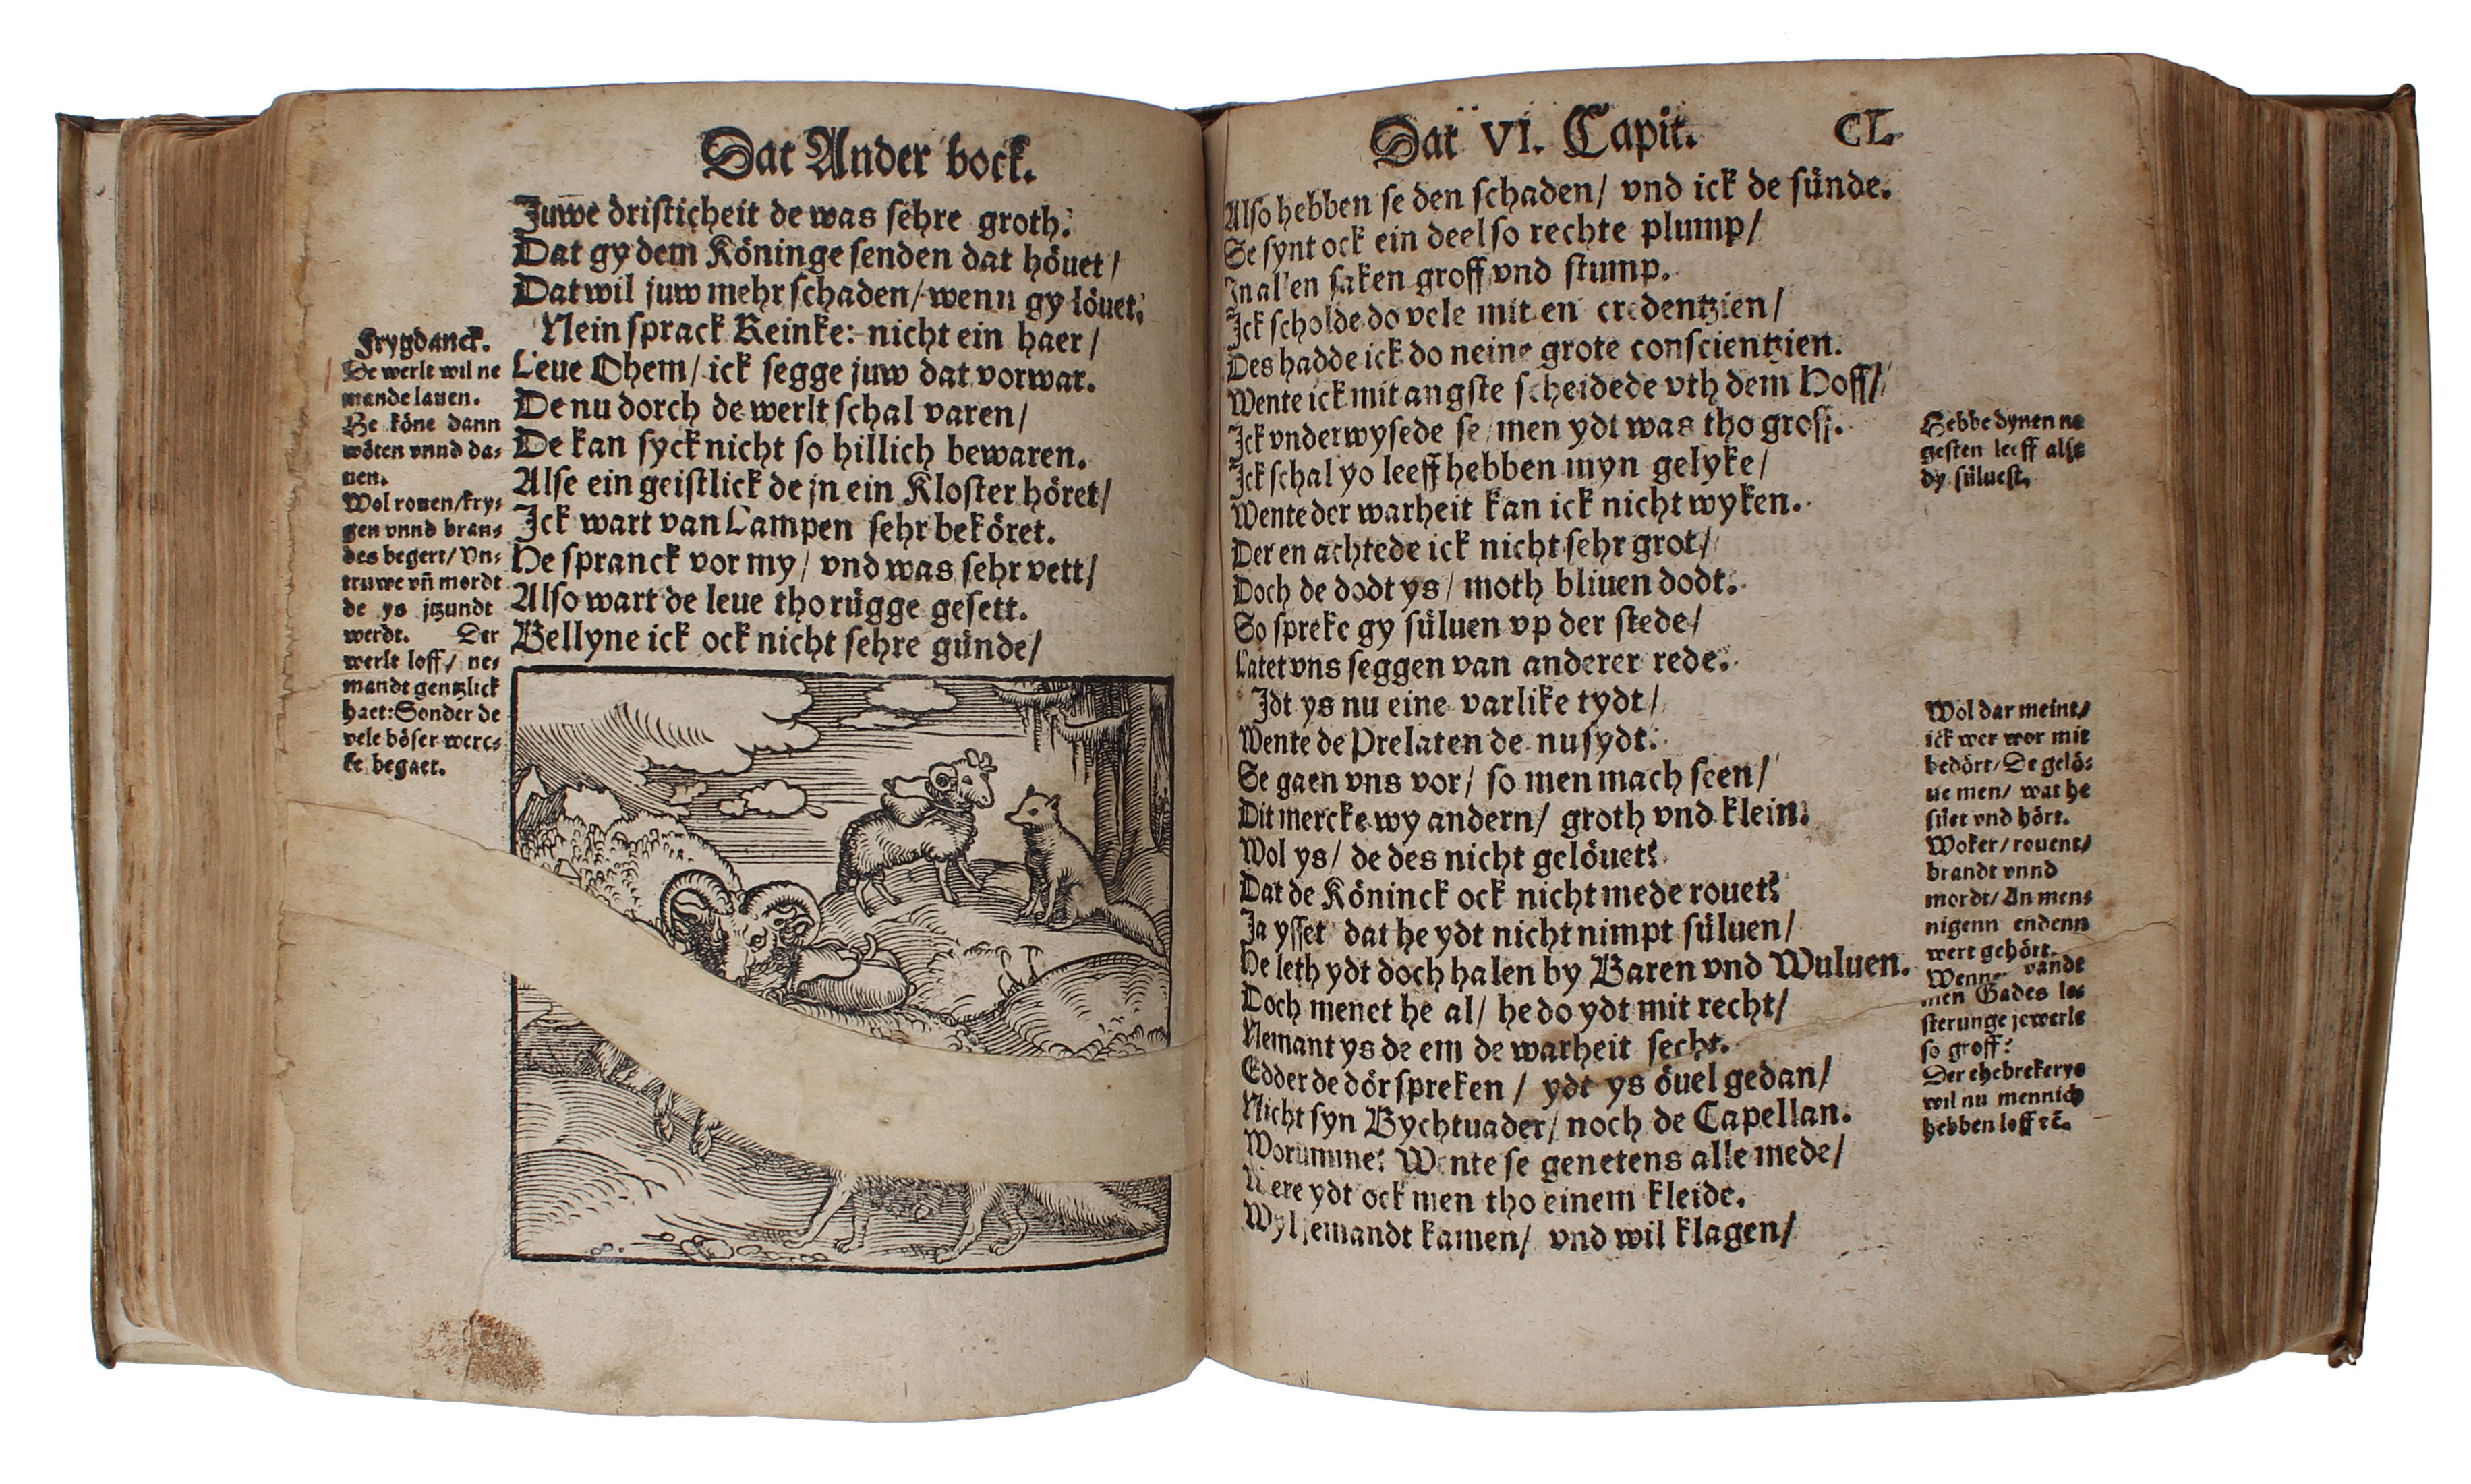 Dat Ander bock.
Juwe dristicheit de was sehre groth:
Dat gy dem Köninge senden dat höuet /
Dat wil juw mehr schaden / wenn gy löuet.
Nein sprack Reinke: nicht ein haer /
Leue Ohem / ick segge juw dat vorwar.
De nu dorch de werlt schal varen /
De kan syck nicht so hillich bewaren.
Alse ein geistlick de jn ein Kloster höret /
Ick wart van Lampen sehr beköret.
He spranck vor my / vnd was sehr vett /
Also wart de leue tho rügge gesett.
Bellyne ick ock nicht sehre günde /
Frygdanck.
De werlt wil ne
mande lauen.
He köne dann
wöten vnnd da-
uen.
Wol rouen / kry-
gen vnnd bran-
des begert / Vn-
truwe vñ mordt
de ys jtzundt
werdt. Der
werlt loff / ne-
mandt gentzlick
haet: Sonder de
vele böser werc-
ke begaet.
Dat VI. Capit. CL
Also hebben se den schaden / vnd ick de sünde.
Se synt ock ein deel so rechte plump /
In allen saken groff vnd stump.
Ick scholde do vele mit en credentzien /
Des hadde ick do neine grote conscientzien.
Wente ick mit angste scheidede vth dem Hoff /
Ick vnderwysede se / men ydt was tho groff.
Ick schal yo leeff hebben myn gelyke /
Wente der warheit kan ick nicht wyken.
Der en achtede ick nicht sehr grot /
Doch de dodt ys / moth bliuen dodt.
So spreke gy süluen vp der stede /
Latet vns seggen van anderer rede.
Idt ys nu eine varlike tydt /
Wente de Prelaten de nu sydt.
Se gaen vns vor / so men mach seen /
Dit mercke wy andern / groth vnd klein.
Wol ys / de des nicht gelöuet?
Dat de Köninck ock nicht mede rouet?
Ja ysset dat he ydt nicht nimpt süluen /
He leth ydt doch halen by Baren vnd Wuluen.
Doch menet he al / he do ydt mit recht /
Nemant ys de em de warheit secht.
Edder de dör spreken / ydt ys öuel gedan /
Nicht syn Bychtuader / noch de Capellan.
Worumme? Wente se genetens alle mede /
Were ydt ock men tho einem kleide.
Wyl jemandt kamen / vnd wil klagen /
Hebbe dynen ne
gesten leeff alse
dy süluest.
Wol dar meint /
ick wer wor mit
bedört / De gelö-
ue men / wat he
süet vnd hört.
Woker / rouent /
brandt vnnd
mordt / An men-
nigenn endenn
wert gehört.
Wenne vandt
men Gades le-
sterunge jewerle
so groff?
Der ehebrekerye
wil nu mennich
hebben loff ꝛc̄.